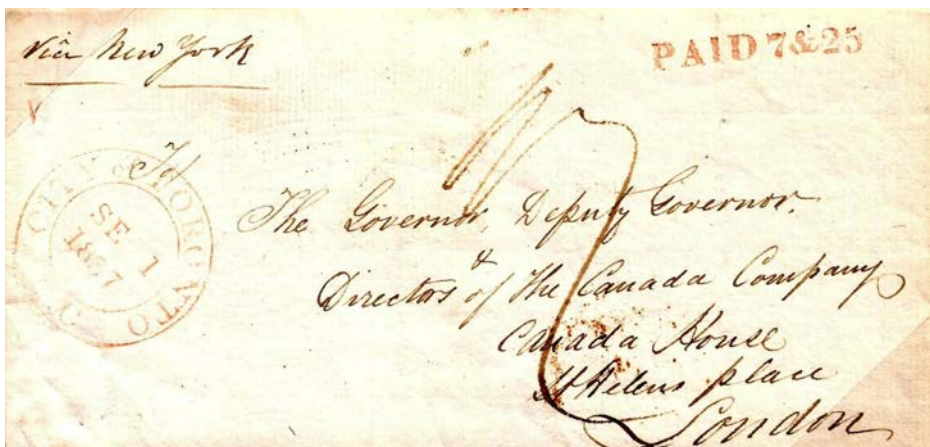 Via New York
PAID 7&25
CITY OF TORONTO U.C
SE 1
1837
To
The Governor, Deputy Governor.
&
Directors of the Canada Company
Canada House
St Helens place
London